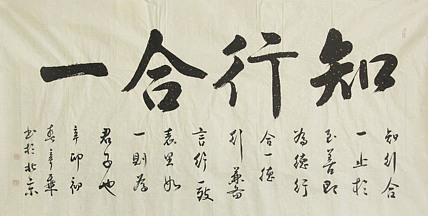 知行合一
知行合
一止於
至善即
為德行
合一德
行兼備
言行一致
表里如
一則為
君子也
辛卯初
春
書於北京